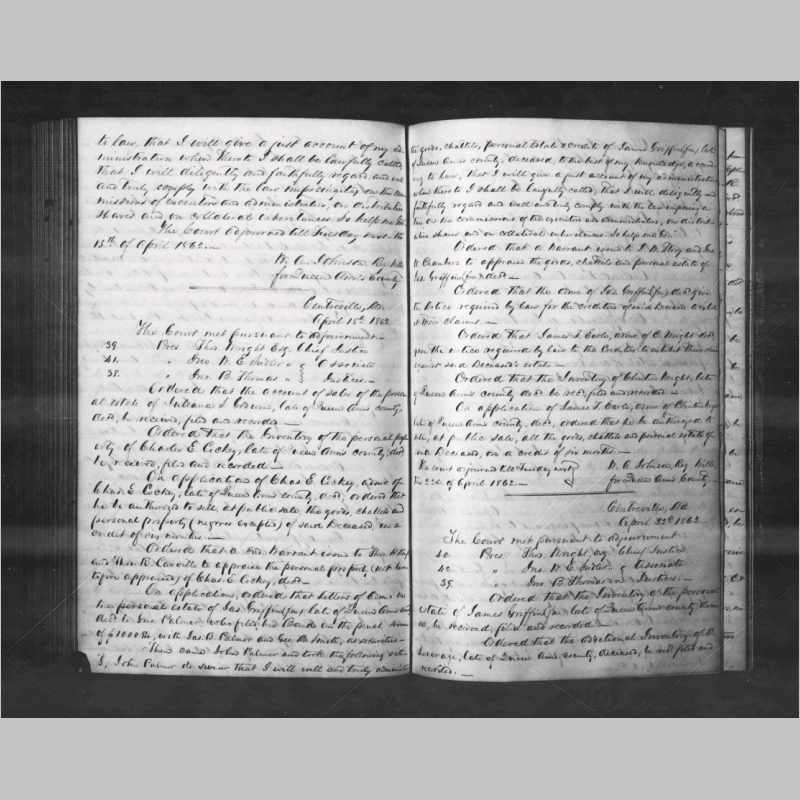 to law, that I will give a just account of my ad-
ministration when thereto I shall be lawfully called,
that I will diligently and faithfully regard, and well
and truly comply with the law imposing a tax on the com-
missions of executors and administrators, on distributive
shares and on collateral inheritances. So help me God
The Court adjourned till Tuesday next the
15th of April 1862.
Wm A. Johnson Reg Wills
for Queen Ann's County
Centreville, Md
April 15th 1862
The Court met pursuant to adjournment.
39. Pres. Thos. Wright Esq. Chief Justice
41. " Jno. W. E. Sudler " & Associate
38. " Jno. B. Thomas " Justices.
Ordered that the account of sales of the person-
al estate of late of Queen Anns county,
decd, be received, filed and recorded
Ordered that the Inventory of the personal prop-
erty of Charles E. Cockey, late of Queen Anns county, decd
be received, filed and recorded
On application of Chas. E. Cockey, admr of
Chas. E. Cockey, late of Queen Anns county, decd, ordered that
he be authorized to sell, at public sale, the goods, chattels and
personal property (negroes excepted) of said Deceased, on a
credit of six months.
Ordered that a Warrant issue to Thos.
and to appraise the personal property (not here-
tofore appraised) of Chas. E. Cockey, decd.
On application, ordered that letters of Admn on
the personal estate of Jas. Griffin late of Queen Anns county
decd to Jno. Palmer, who filed his Bond in the penal sum
of $1000, with Jas. Palmer and Geo. Smith, as securities
Then came John Palmer and took the following oath
"I, John Palmer do swear that I will well and truly administer
the goods, chattels, personal estate & credits of James Griffin late
of Queen Anns county, deceased, to the best of my knowledge, accord-
ing to law, that I will give a just account of my administration
when thereto I shall be lawfully called, that I will diligently and
faithfully regard and well and truly comply with the law imposing a
tax on the commissions of the executors and administrators, on distribu-
tive shares and on collateral inheritances. So help me God."
Ordered that a warrant issue to and Jno.
W. Chambers to appraise the goods, chattels and personal estate of
Jas. Griffin decd
Ordered that the admr of Jas. Griffin decd give
the Notice required by law for the creditors of said Deceased to exhibit
their claims.
Ordered that James T. Earle, admr of C. Wright decd
give the notice required by law to the Creditors to exhibit their claims
against said Deceased's estate.
Ordered that the Inventory of Clinton Wright, late
of Queen Anns county decd be recd. filed and recorded
On application of James T. Earle, admr of Clinton Wright
late of Queen Anns county, decd, ordered that he be authorized to
sell, at public sale, all the goods, chattels and personal estate of
said Deceased, on a credit of six months.
The court adjourned till Tuesday next
the 22d of April 1862.
W. A. Johnson, Reg Wills
for Queen Anns County
Centreville, Md
April 22d 1862
The Court met pursuant to adjournment
40. Pres. Thos. Wright esq. Chief Justice
42. " Jno. W. E. Sudler " & Associate
39. " Jno. B. Thomas " Justices.
Ordered that the Inventory of the personal
estate of James Griffin late of Queen Anns county decea-
sed, be received, filed and recorded.
Ordered that the additional Inventory of
late of Queen Anns county, deceased, be recd filed and
recorded.